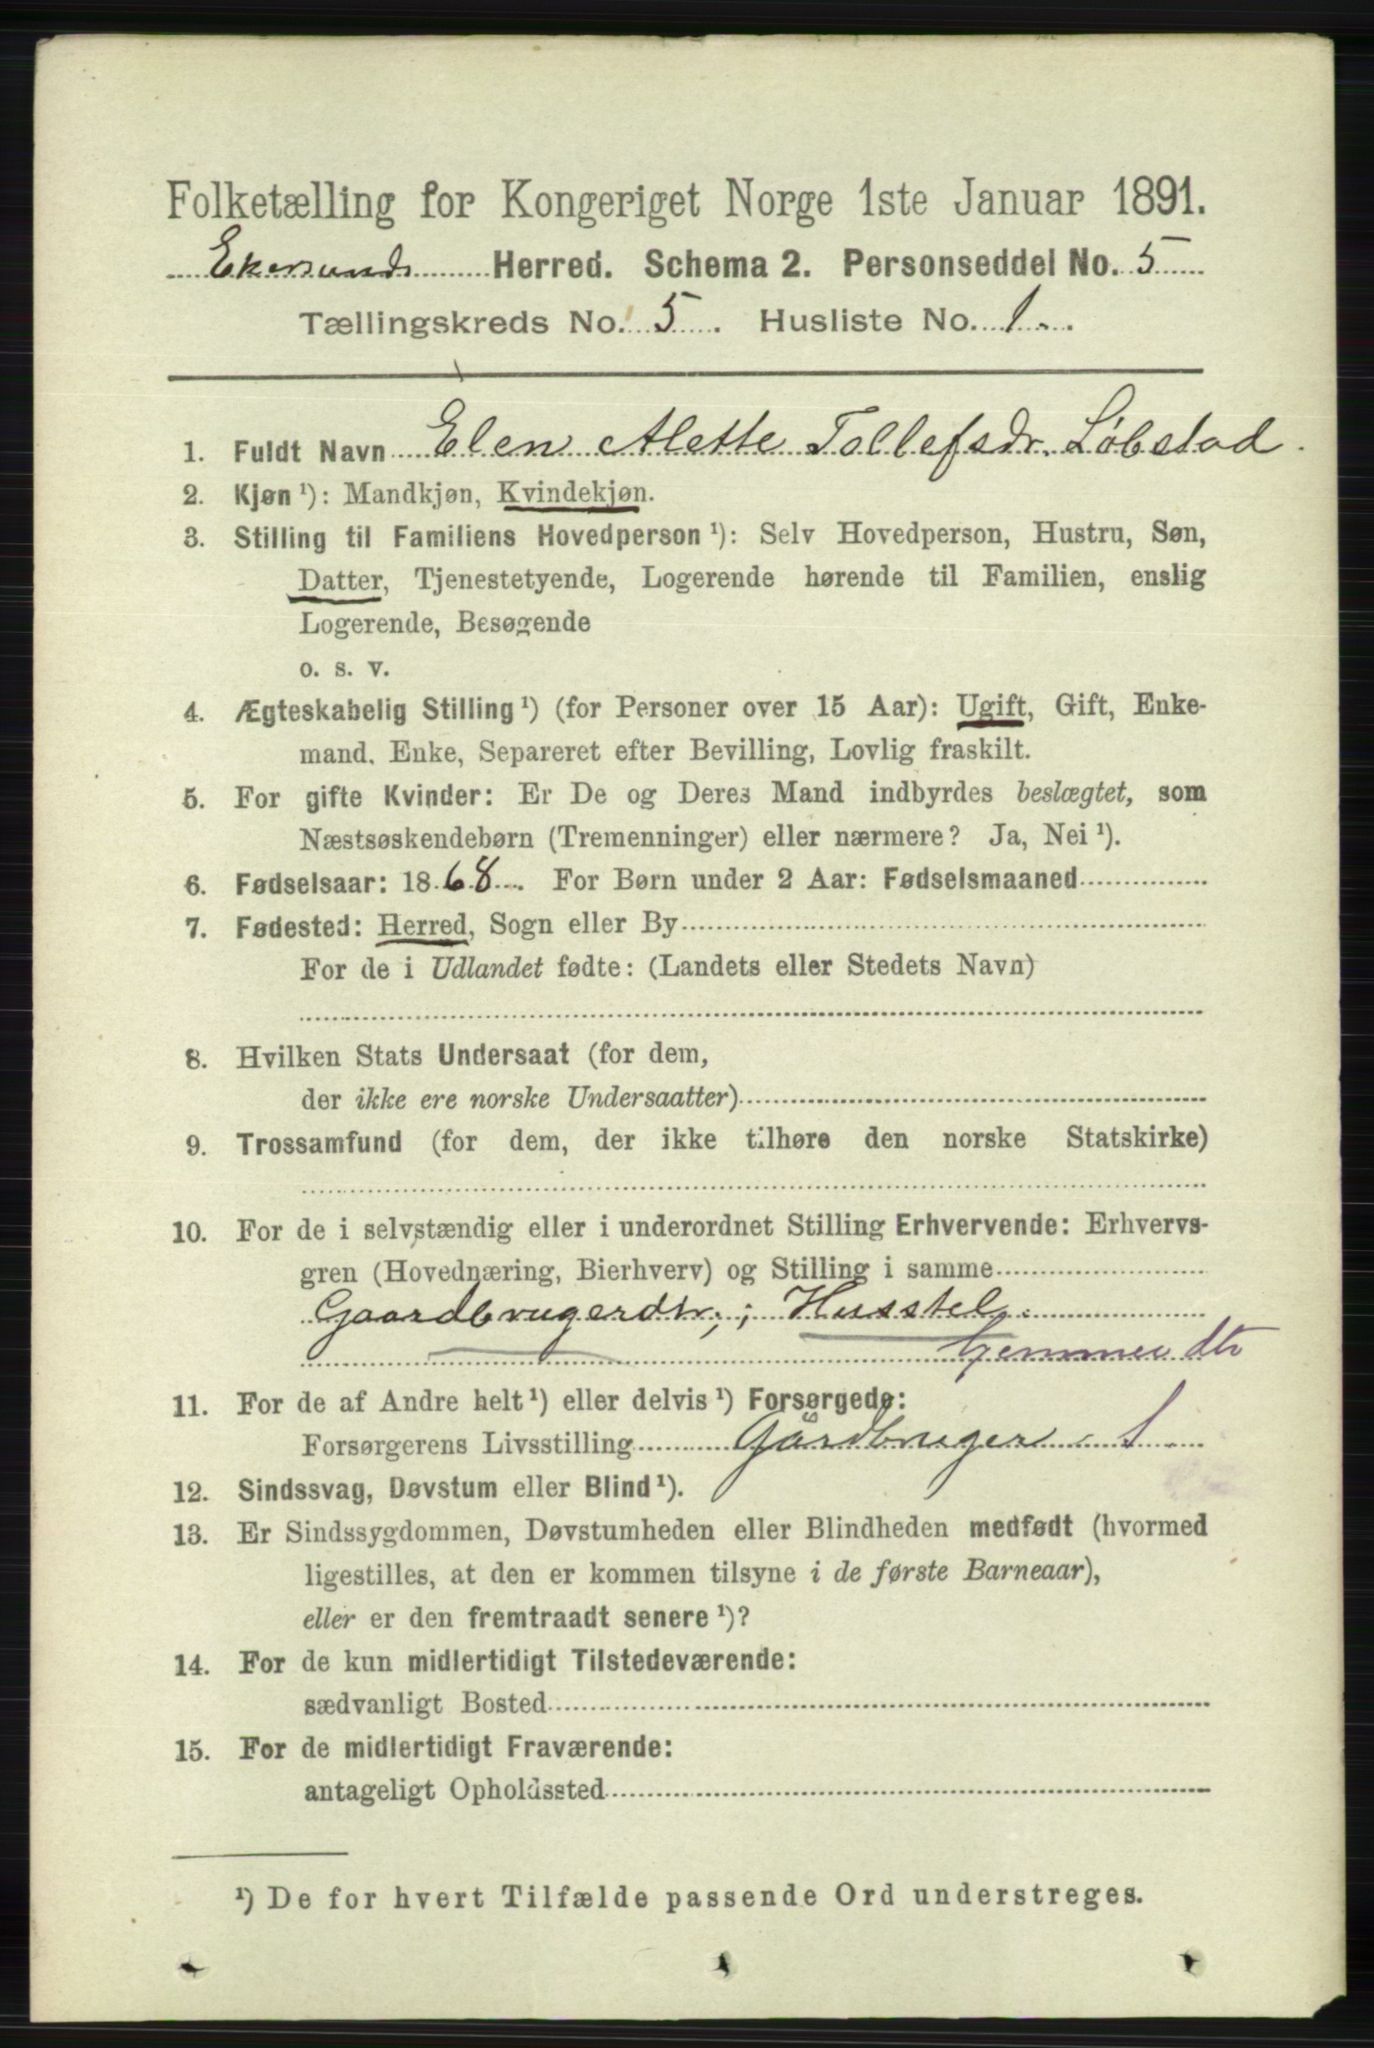 Folketælling for Kongeriget Norge 1ste Januar 1891.
Ekersunds Herred. Schema 2. Personseddel No. 5
Tællingskreds No. 5. Husliste No. 1.
1. Fuldt Navn Elen Alette Tollefsdr. Løbstad.
2. Kjøn ¹): Mandkjøn, Kvindekjøn.
3. Stilling til Familiens Hovedperson ¹): Selv Hovedperson, Hustru, Søn,
Datter, Tjenestetyende, Logerende hørende til Familien, enslig
Logerende, Besøgende
o. s. v.
4. Ægteskabelig Stilling ¹) (for Personer over 15 Aar): Ugift, Gift, Enke-
mand, Enke, Separeret efter Bevilling, Lovlig fraskilt.
5. For gifte Kvinder: Er De og Deres Mand indbyrdes beslægtet, som
Næstsøskendebørn (Tremenninger) eller nærmere? Ja, Nei ¹).
6. Fødselsaar: 1868. For Børn under 2 Aar: Fødselsmaaned
7. Fødested: Herred, Sogn eller By
For de i Udlandet fødte: (Landets eller Stedets Navn)
8. Hvilken Stats Undersaat (for dem,
der ikke ere norske Undersaatter)
9. Trossamfund (for dem, der ikke tilhøre den norske Statskirke)
10. For de i selvstændig eller i underordnet Stilling Erhvervende: Erhvervs-
gren (Hovednæring, Bierhverv) og Stilling i samme
Gaardbrugerdtr.; Husstel.
hjemmev dtr
11. For de af Andre helt ¹) eller delvis ¹) Forsørgede:
Forsørgerens Livsstilling Gårdbruger. S
12. Sindssvag, Døvstum eller Blind ¹).
13. Er Sindssygdommen, Døvstumheden eller Blindheden medfødt (hvormed
ligestilles, at den er kommen tilsyne i de første Barneaar),
eller er den fremtraadt senere ¹)?
14. For de kun midlertidigt Tilstedeværende:
sædvanligt Bosted
15. For de midlertidigt Fraværende:
antageligt Opholdssted
¹) De for hvert Tilfælde passende Ord understreges.